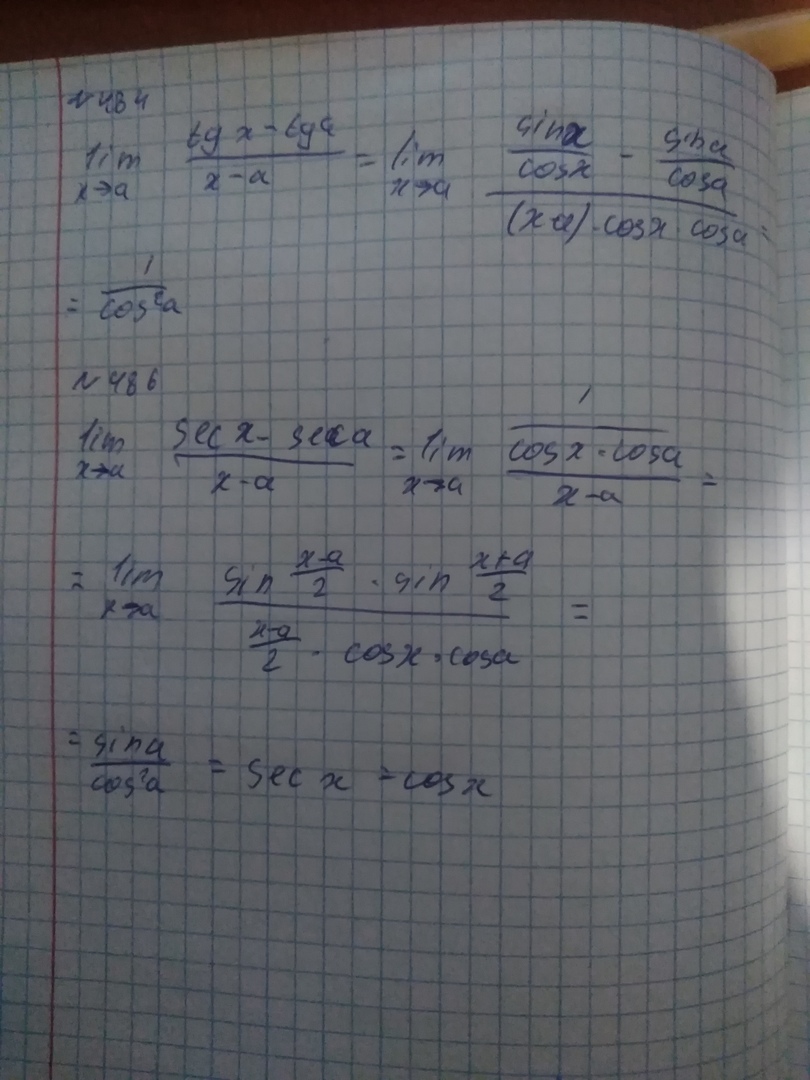 № 484
lim x→a (tg x - tg a)/(x-a) = lim x→a (sin x/cos x - sin a/cos a)/((x-a)·cos x·cos a) =
= 1/cos²a
№ 486
lim x→a (sec x - sec a)/(x-a) = lim x→a (1/(cos x · cos a))/(x-a) =
= lim x→a (sin (x-a)/2 · sin (x+a)/2)/((x-a)/2 · cos x · cos a) =
= sin a/cos²a = sec x = cos x